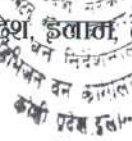 देश, ईलाम,
वन निर्देशना
भिजन वन कार्याल
कोशी प्रदेश इला